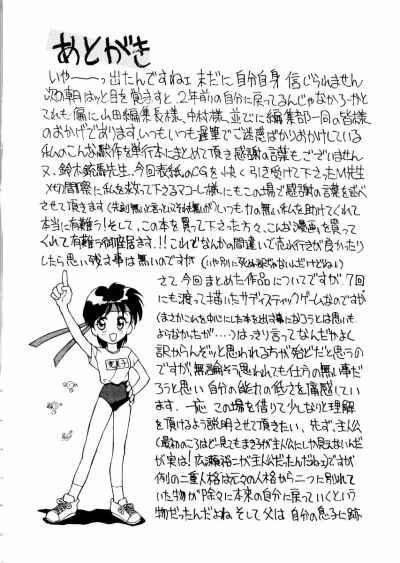 あとがき
いやーーっ出たんですねェ まだに自分自身 信じられません
次の朝 ハッと目を覚ますと、2年前の自分に戻ってるんじゃなかろーかと
てれも偏に山田編集長様、中村様、並びに編集部一同の皆様
のおかげであります。いつもいつも遅筆でご迷惑ばかりおかけしている
私のこんな駄作を単行本にまとめて頂き感謝の言葉もございません
又、鈴木銃馬先生、今回表紙のCGを快く引き受けて下さったM先生
〆切間際に私を救って下さるマコーレ様にもこの場で感謝の言葉を述べ
させて頂きます いつも力の無い私を助けてくれて
本当に有難う！そして、この本を買って下さった方々、こんな漫画を買って
くれて有難う御座居ます!! これでなんかの間違いで売れ行きが良かったり
したら思い残す事は無いのですが (いや別に死ぬ訳じゃないんだけどねい)
さて今回まとめた作品についてですが、7回
にも渡って描いたサディスティックゲームなのですが
(まさかこれを中心にした本を出す事になろうとは思いも
よらなかったが….)はっきり言ってなんだかよく
訳からんぞッと思われる方が殆どだと思うの
ですが、無論そう思われても仕方の無い事だ
ろうと思い 自分の能力の低さを痛感してい
ます、一応 この場を借りて少しなりと理解
を頂けるよう説明させて頂きたい、先ず、主人公
(最初のころはど〜見てもまさきが主人公にしか見えないんだ
が実は！広瀬裕二が主人公だったんだねェ)ですが
例の二重人格は元々の人格から二つに別れて
いた物が除々に本来の自分に戻っていくという
物だったんだよね そして父は 自分の息子に跡